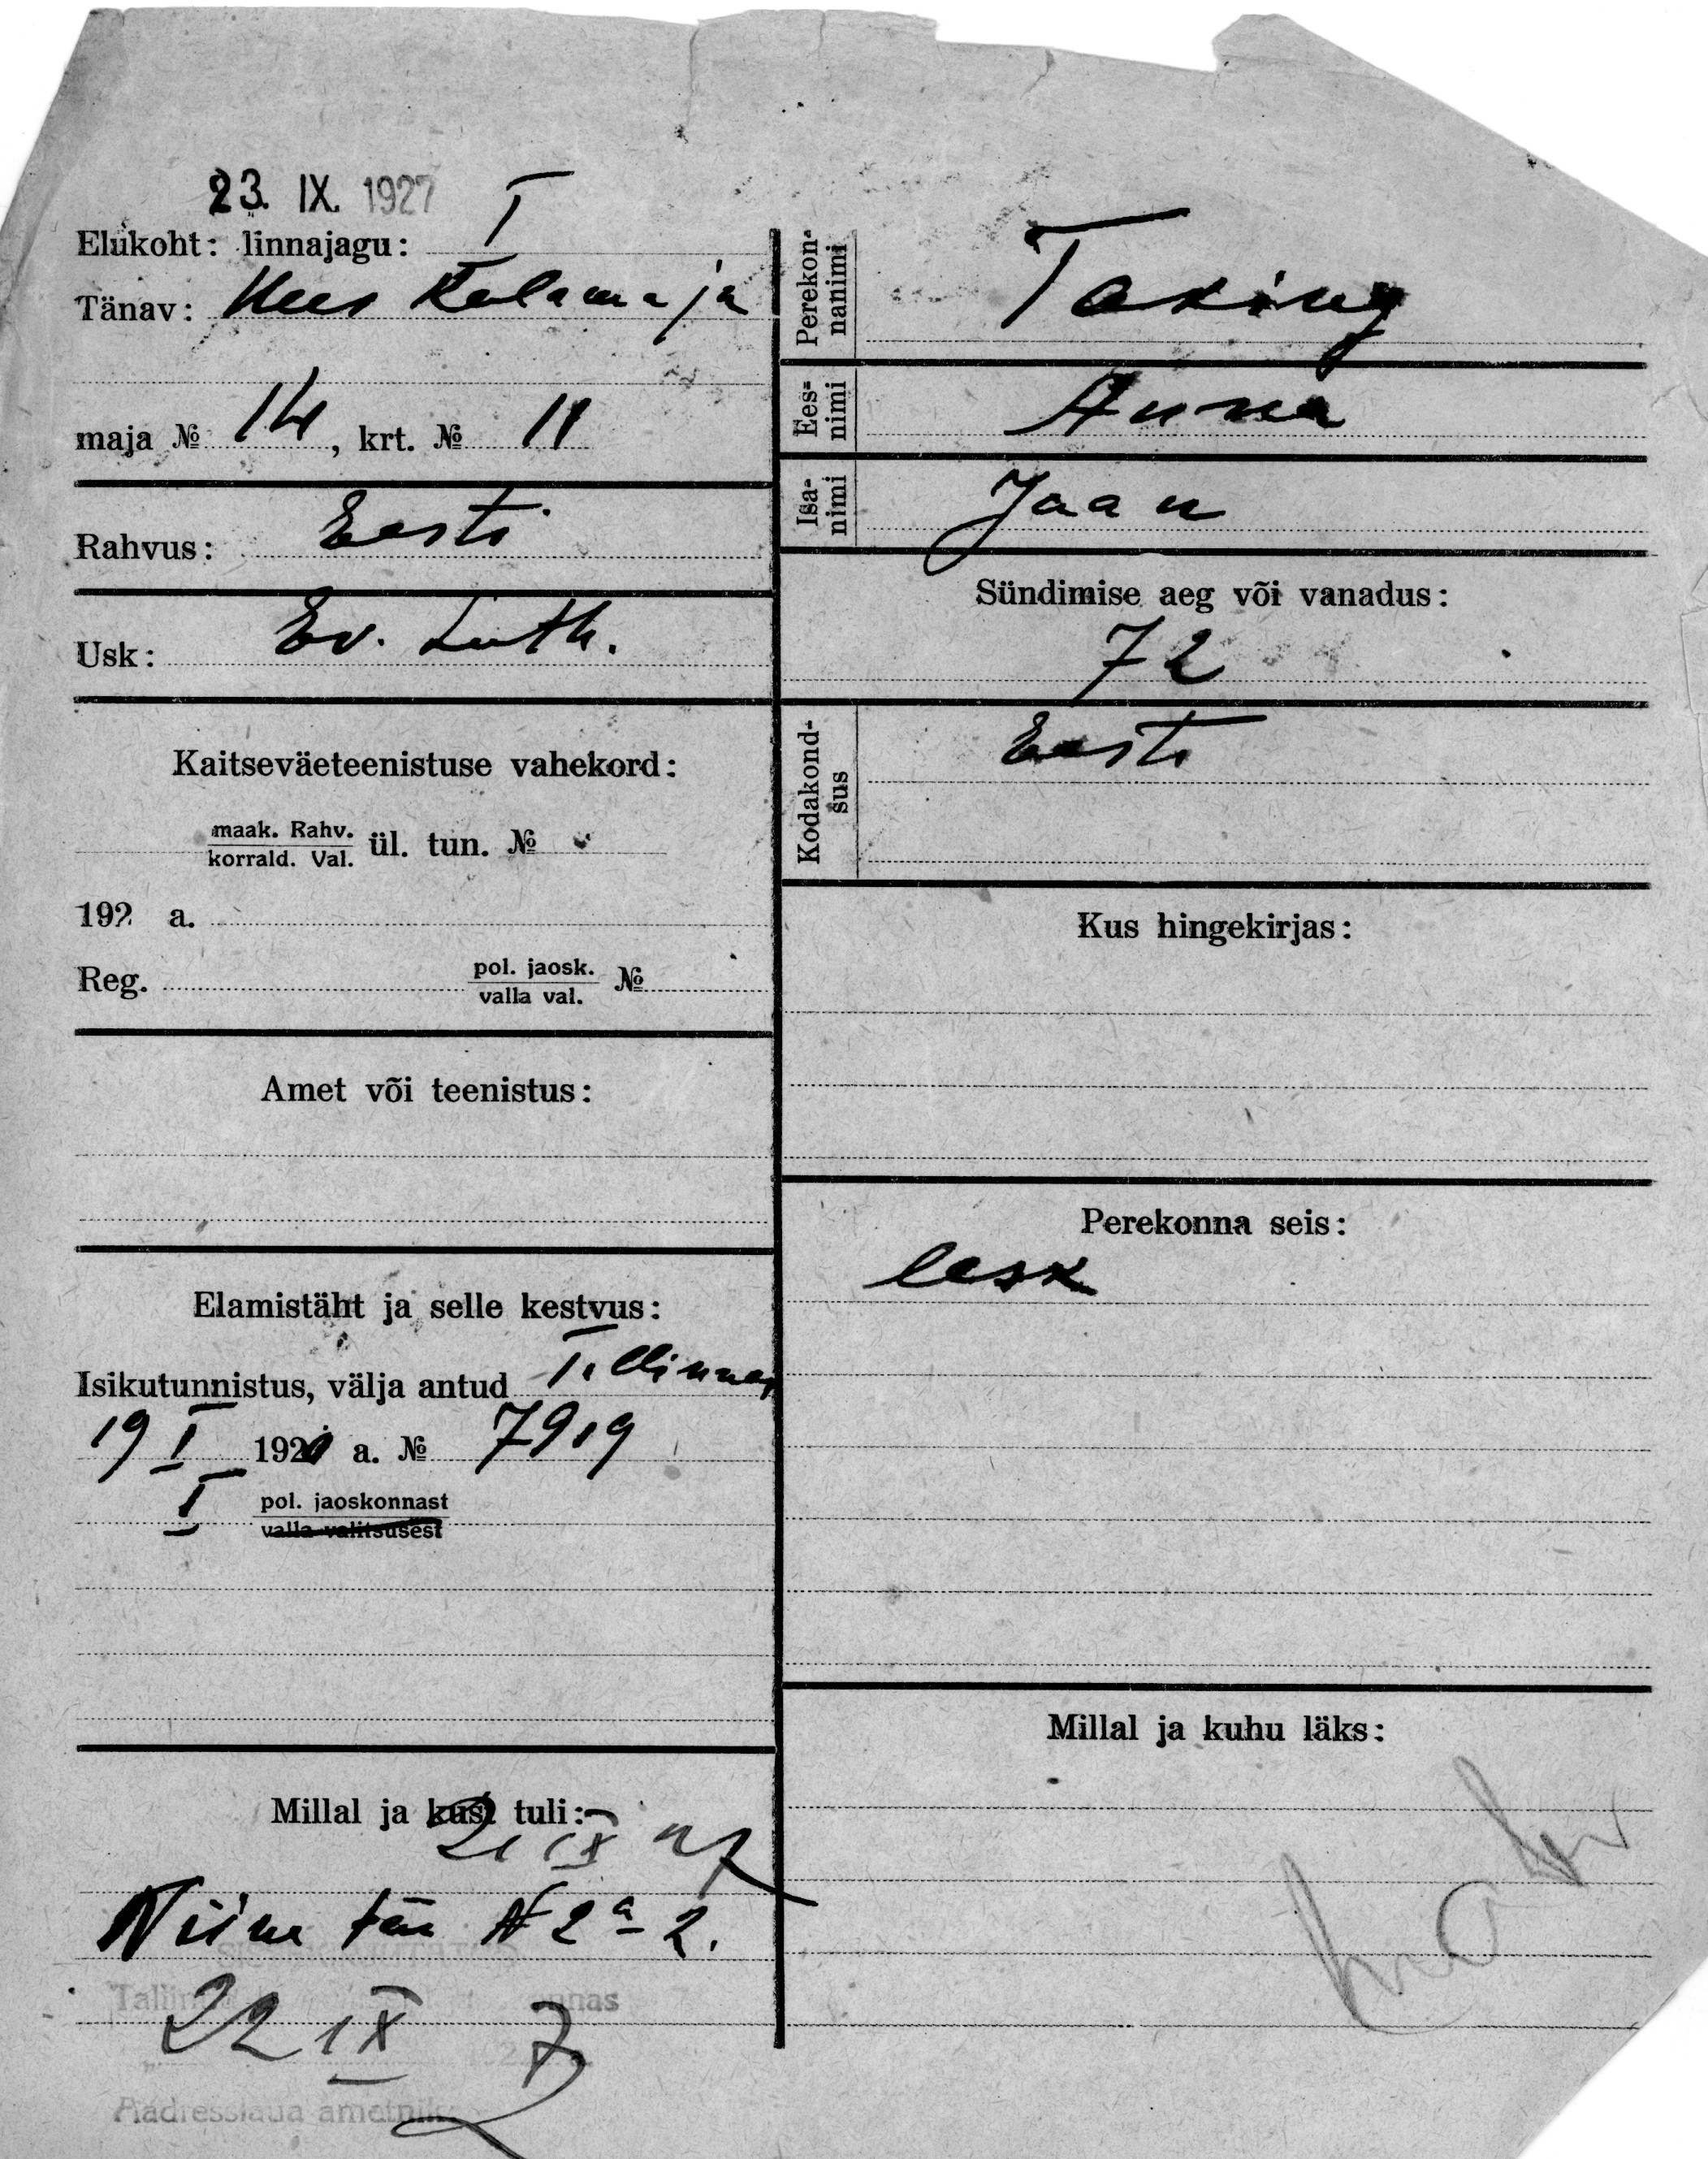 23. IX. 1927
Elukoht: linnajagu: I
Tänav: Uus Kalamaja
maja № 14, krt. № 11
Rahvus: Eesti
Usk: Ev. Luth.
Kaitseväeteenistuse vahekord:
maak. Rahv.
korrald. Val. ül. tun. №
192 a.
Reg. pol. jaosk.
valla val. №
Amet või teenistus:
Elamistäht ja selle kestvus:
Isikutunnistus, välja antud Tallinnas
19 I 1921 a. № 7919
I pol. jaoskonnast
valla valitsusest
Millal ja kust tuli:
21 IX 27
Niine tän № 2a-2.
Tallinna
22 IX 7
Aadresslaua ametnik
Perekon-
nanimi
Taking
Ees-
nimi
Anna
Isa-
nimi
Jaan
Sündimise aeg või vanadus:
72
Kodakond-
sus
Eesti
Kus hingekirjas:
Perekonna seis:
lesk
Millal ja kuhu läks: